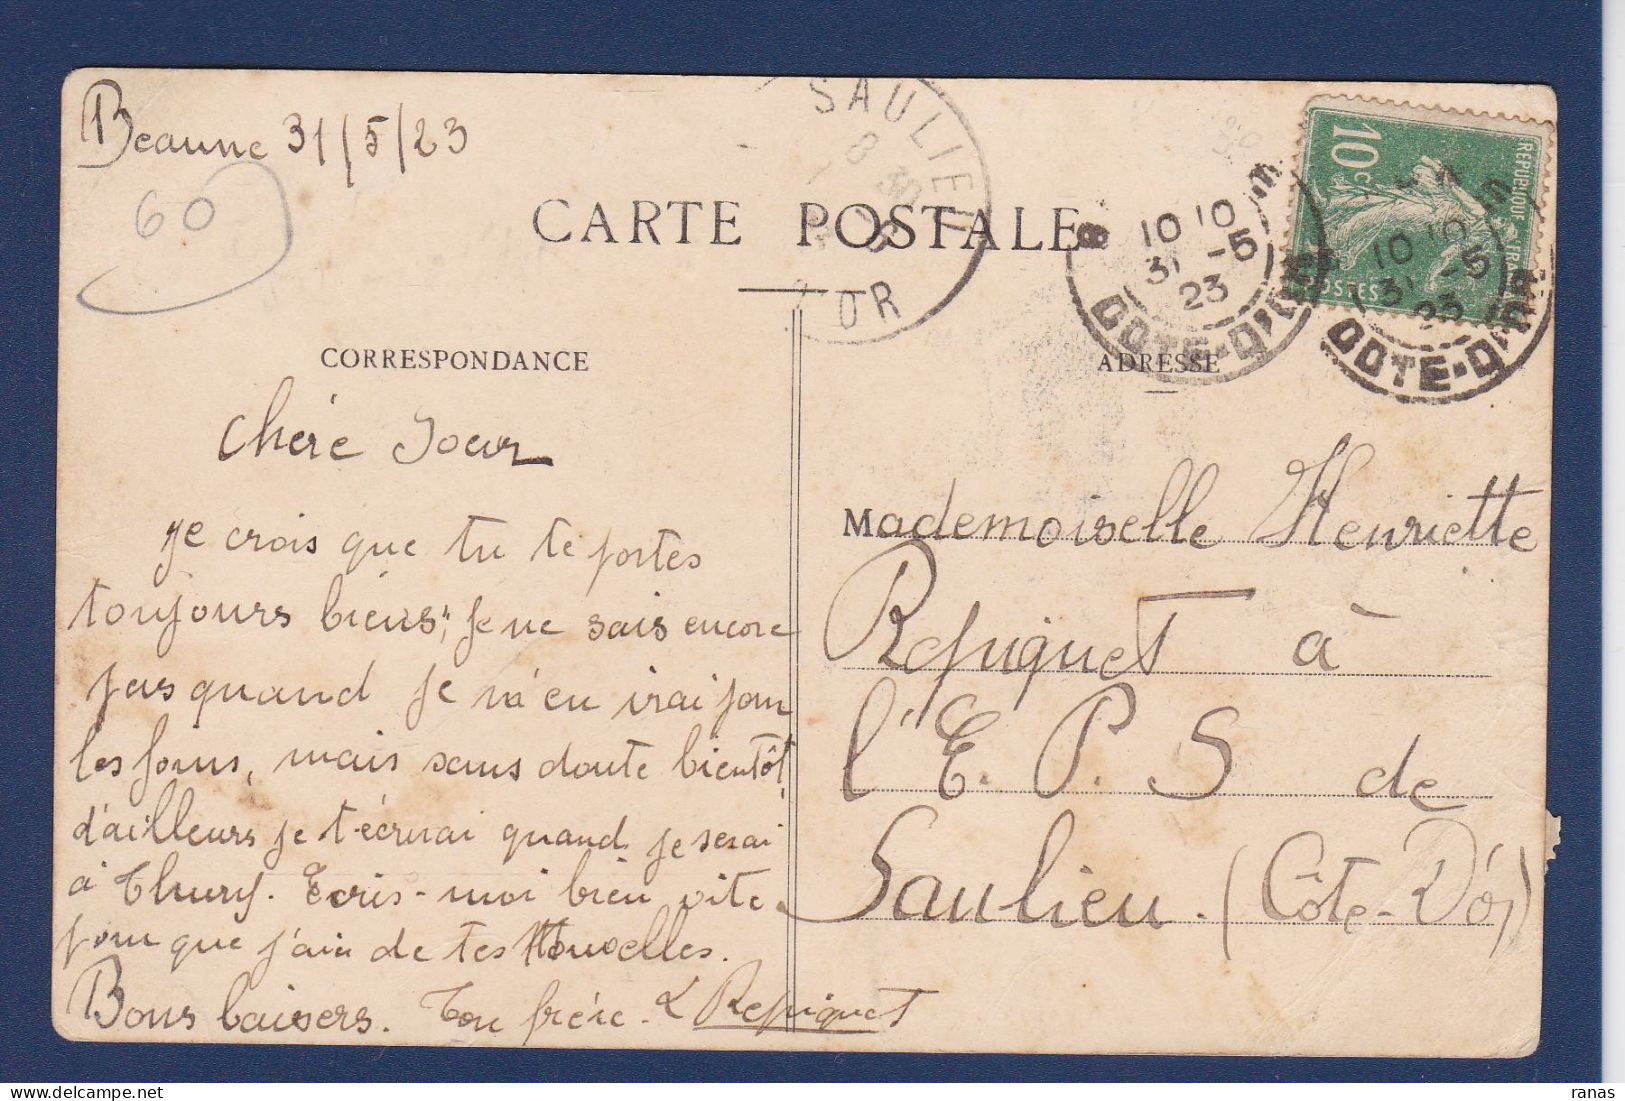 Beaune 31/5/23
60
SAULIEU
8 30
D'OR
CARTE POSTALE
10 10
31 -5
23
COTE-D'OR
10c
REPUBLIQUE FRANCAISE
POSTES
10 10
31 -5
23
COTE-D'OR
CORRESPONDANCE
Chére Soeur
Je crois que tu te portes
toujours biens; je ne sais encore
pas quand je m'en irai pour
les foins, mais sans doute bientôt
d'ailleurs je t'écrirai quand je serai
à Thury. Ecris-moi bien vite
pour que j'aie de tes Nouvelles.
Bons baisers. Ton frére L Repiquet
ADRESSE
Mademoiselle Henriette
Repiquet à
l'E. P. S de
Saulieu. (Côte-D'or)
ranas